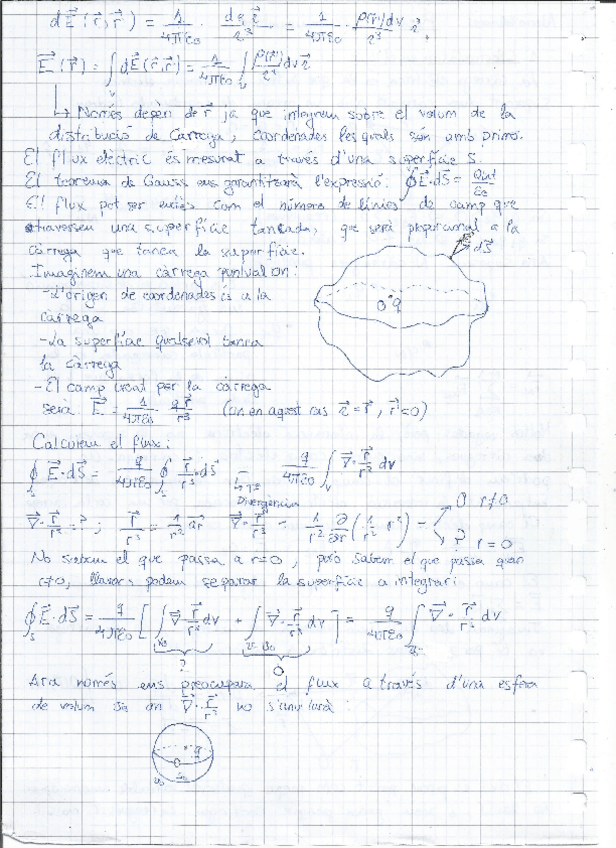 dE⃗(r⃗, r⃗') = 1/4πε₀ · dq r⃗/r³ = 1/4πε₀ · ρ(r⃗')dv/r³ r⃗,
E⃗(r⃗) = ∫ᵥ dE⃗(r⃗, r⃗') = 1/4πε₀ ∫ᵥ ρ(r⃗')/r³ dv r⃗
↳ Només depèn de r⃗ ja que integrem sobre el volum de la
distribució de càrrega, coordenades les quals són amb prima.
El flux elèctric és mesurat a través d'una superfície S.
El teorema de Gauss ens garantitzarà l'expressió: ∮E⃗·dS⃗ = Qint/ε₀
El flux pot ser entès com el número de línies de camp que
travessen una superfície tancada, que serà proporcional a la
càrrega que tanca la superfície.
dS⃗
Imaginem una càrrega puntual on:
- L'origen de coordenades és a la
càrrega
O q
- La superfície qualsevol tanca
la càrrega
- El camp creat per la càrrega
serà E⃗ = 1/4πε₀ · q r⃗/r³ (on en aquest cas r⃗ = r⃗, r⃗' = 0)
Calculem el flux:
∮ₛ E⃗·dS⃗ = q/4πε₀ ∮ₛ r⃗/r³·dS⃗ q/4πε₀ ∫ᵥ ∇⃗·r⃗/r³ dv
Divergència
∇⃗·r⃗/r³ = ? ; r⃗/r³ = 1/r² a⃗r ∇⃗·r⃗/r³ = 1/r² ∂/∂r (1/r² r²) = 0 r≠0
? r=0
No sabem el que passa a r=0, però sabem el que passa quan
r≠0, llavors podem separar la superfície a integrar:
∮ₛ E⃗·dS⃗ = q/4πε₀ [∫ ∇⃗·r⃗/r³ dv + ∫ ∇⃗·r⃗/r³ dv] = q/4πε₀ ∫ ∇⃗·r⃗/r³ dv
? 0
Ara només ens preocuparà el flux a través d'una esfera
de volum on ∇⃗·r⃗/r³ no s'anul·larà:
q
O